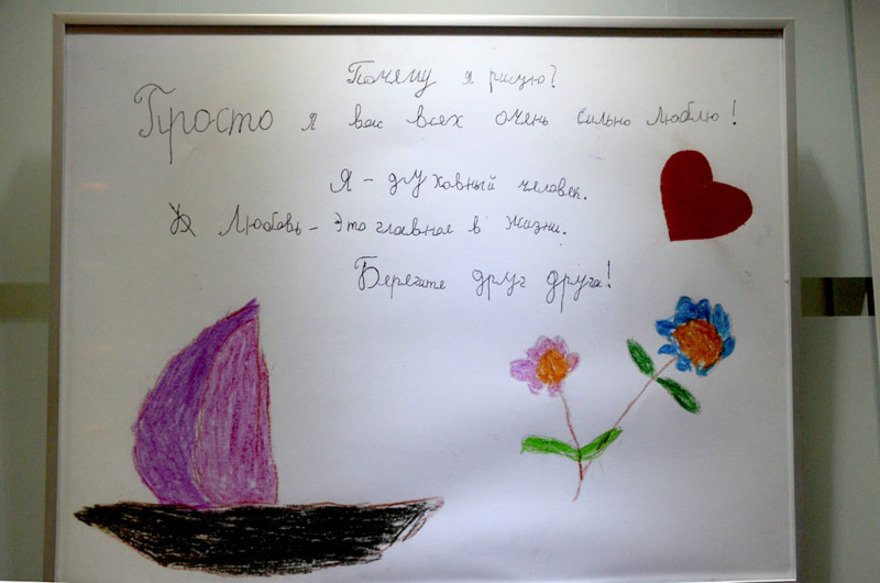 Почему я рисую?
Просто я вас всех очень сильно люблю!
Я - духовный человек.
Любовь - это главное в жизни.
Берегите друг друга!